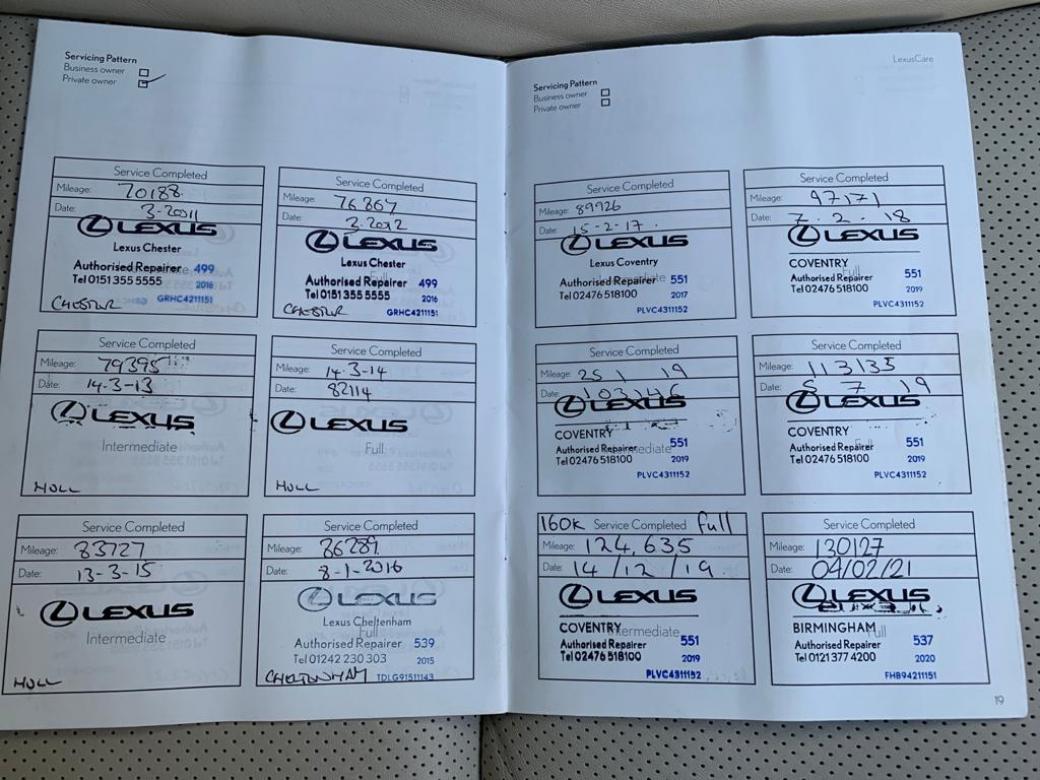 Servicing Pattern
Business owner
Private owner
Service Completed
Mileage: 70188
Date: 3-2011
LEXUS
Lexus Chester
Authorised Repairer 499
Tel 0151 355 5555 2016
GRHC4211151
CHESTER
Service Completed
Mileage: 76867
Date: 3.2012
LEXUS
Lexus Chester
Full
Authorised Repairer 499
Tel 0151 355 5555 2016
CHESTER GRHC4211151
Service Completed
Mileage: 79395
Date: 14-3-13
LEXUS
Intermediate
HULL
Service Completed
Mileage: 14-3-14
Date: 82114
LEXUS
Full
HULL
Service Completed
Mileage: 83727
Date: 13-3-15
LEXUS
Intermediate
HULL
Service Completed
Mileage: 86289
Date: 8-1-2016
LEXUS
Lexus Cheltenham
Full
Authorised Repairer 539
Tel 01242 230 303 2015
CHELTENHAM TDLG91511143
LexusCare
Servicing Pattern
Business owner
Private owner
Service Completed
Mileage: 89926
Date: 15-2-17
LEXUS
Lexus Coventry
Intermediate
Authorised Repairer 551
Tel 02476 518100 2017
PLVC4311152
Service Completed
Mileage: 97171
Date: 7.2.18
LEXUS
COVENTRY
Full
Authorised Repairer 551
Tel 02476 518100 2019
PLVC4311152
Service Completed
Mileage: 25 1 19
Date: 103146
LEXUS
COVENTRY
Authorised Repairer 551
Intermediate
Tel 02476 518100 2019
PLVC4311152
Service Completed
Mileage: 113135
Date: 5 7 19
LEXUS
COVENTRY
Full
Authorised Repairer 551
Tel 02476 518100 2019
PLVC4311152
160K Service Completed full
Mileage: 124,635
Date: 14/12/19
LEXUS
COVENTRY Intermediate
Authorised Repairer 551
Tel 02476 518100 2019
PLVC4311152
Service Completed
Mileage: 130127
Date: 04/02/21
LEXUS
BIRMINGHAM Full
Authorised Repairer 537
Tel 0121 377 4200 2020
FHB94211151
19